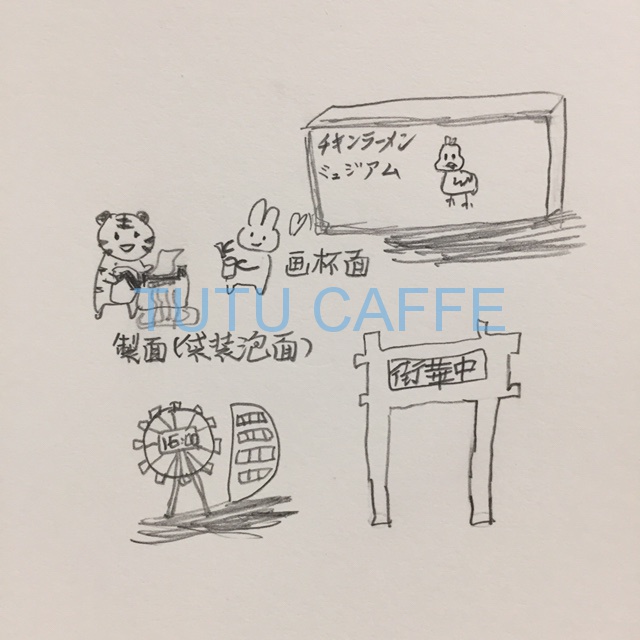 チキンラーメン
ミュジアム
画杯面
TUTU CAFFE
製面(袋装泡面)
街華中
15:00